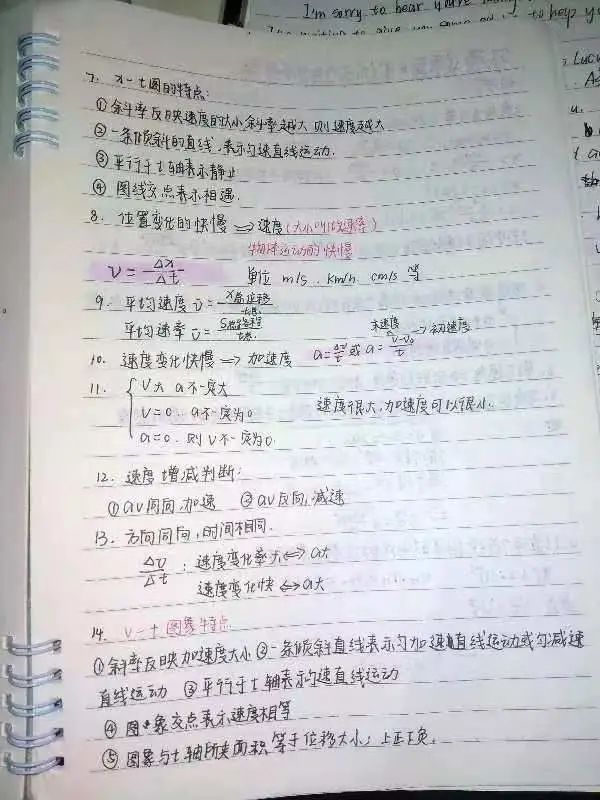 I'm sorry to bear you
to help you
7. x-t图的特点:
①斜率反映速度的大小,斜率越大则速度越大
②一条倾斜的直线,表示匀速直线运动.
③平行于t轴表示静止
④图线交点表示相遇.
8. 位置变化的快慢⇒速度(大小叫做速率)
物体运动的快慢
V=Δx/Δt 单位 m/s. km/h cm/s 等
9. 平均速度 v̄=x总位移/t总
平均速率 v̄=S总路程/t总
末速度
10. 速度变化快慢→加速度 a=Δv/t 或 a=v-v₀/t →初速度
11. { V大 a不一定大
V=0. a不一定为0
a=0. 则V不一定为0.
速度很大,加速度可以很小.
12. 速度增减判断:
①av同向,加速 ②av反向,减速
13. 方向同向,时间不相同.
Δv/Δt : 速度变化率大⇔a大
速度变化快⇔a大
14. v-t图象特点
①斜率反映加速度大小 ②一条倾斜直线表示匀加速直线运动或匀减速
直线运动 ③平行于t轴表示匀速直线运动
④图象交点表示速度相等
⑤图象与t轴所夹面积,等于位移大小;上正下负.